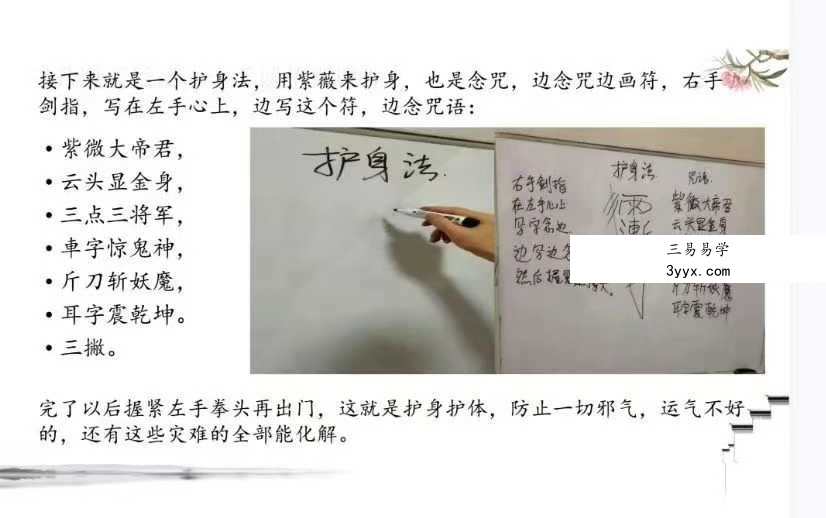 接下来就是一个护身法，用紫薇来护身，也是念咒，边念咒边画符，右手
剑指，写在左手心上，边写这个符，边念咒语：
• 紫微大帝君，
• 云头显金身，
• 三点三将军，
• 車字惊鬼神，
• 斤刀斩妖魔，
• 耳字震乾坤。
• 三撇。
护身法.
护身法
右手剑指
在左手心上
咒语.
紫微大帝君
云头显金身
三易易学
3yyx.com
斤刀斩妖魔
耳字震乾坤
完了以后握紧左手拳头再出门，这就是护身护体，防止一切邪气，运气不好
的，还有这些灾难的全部能化解。